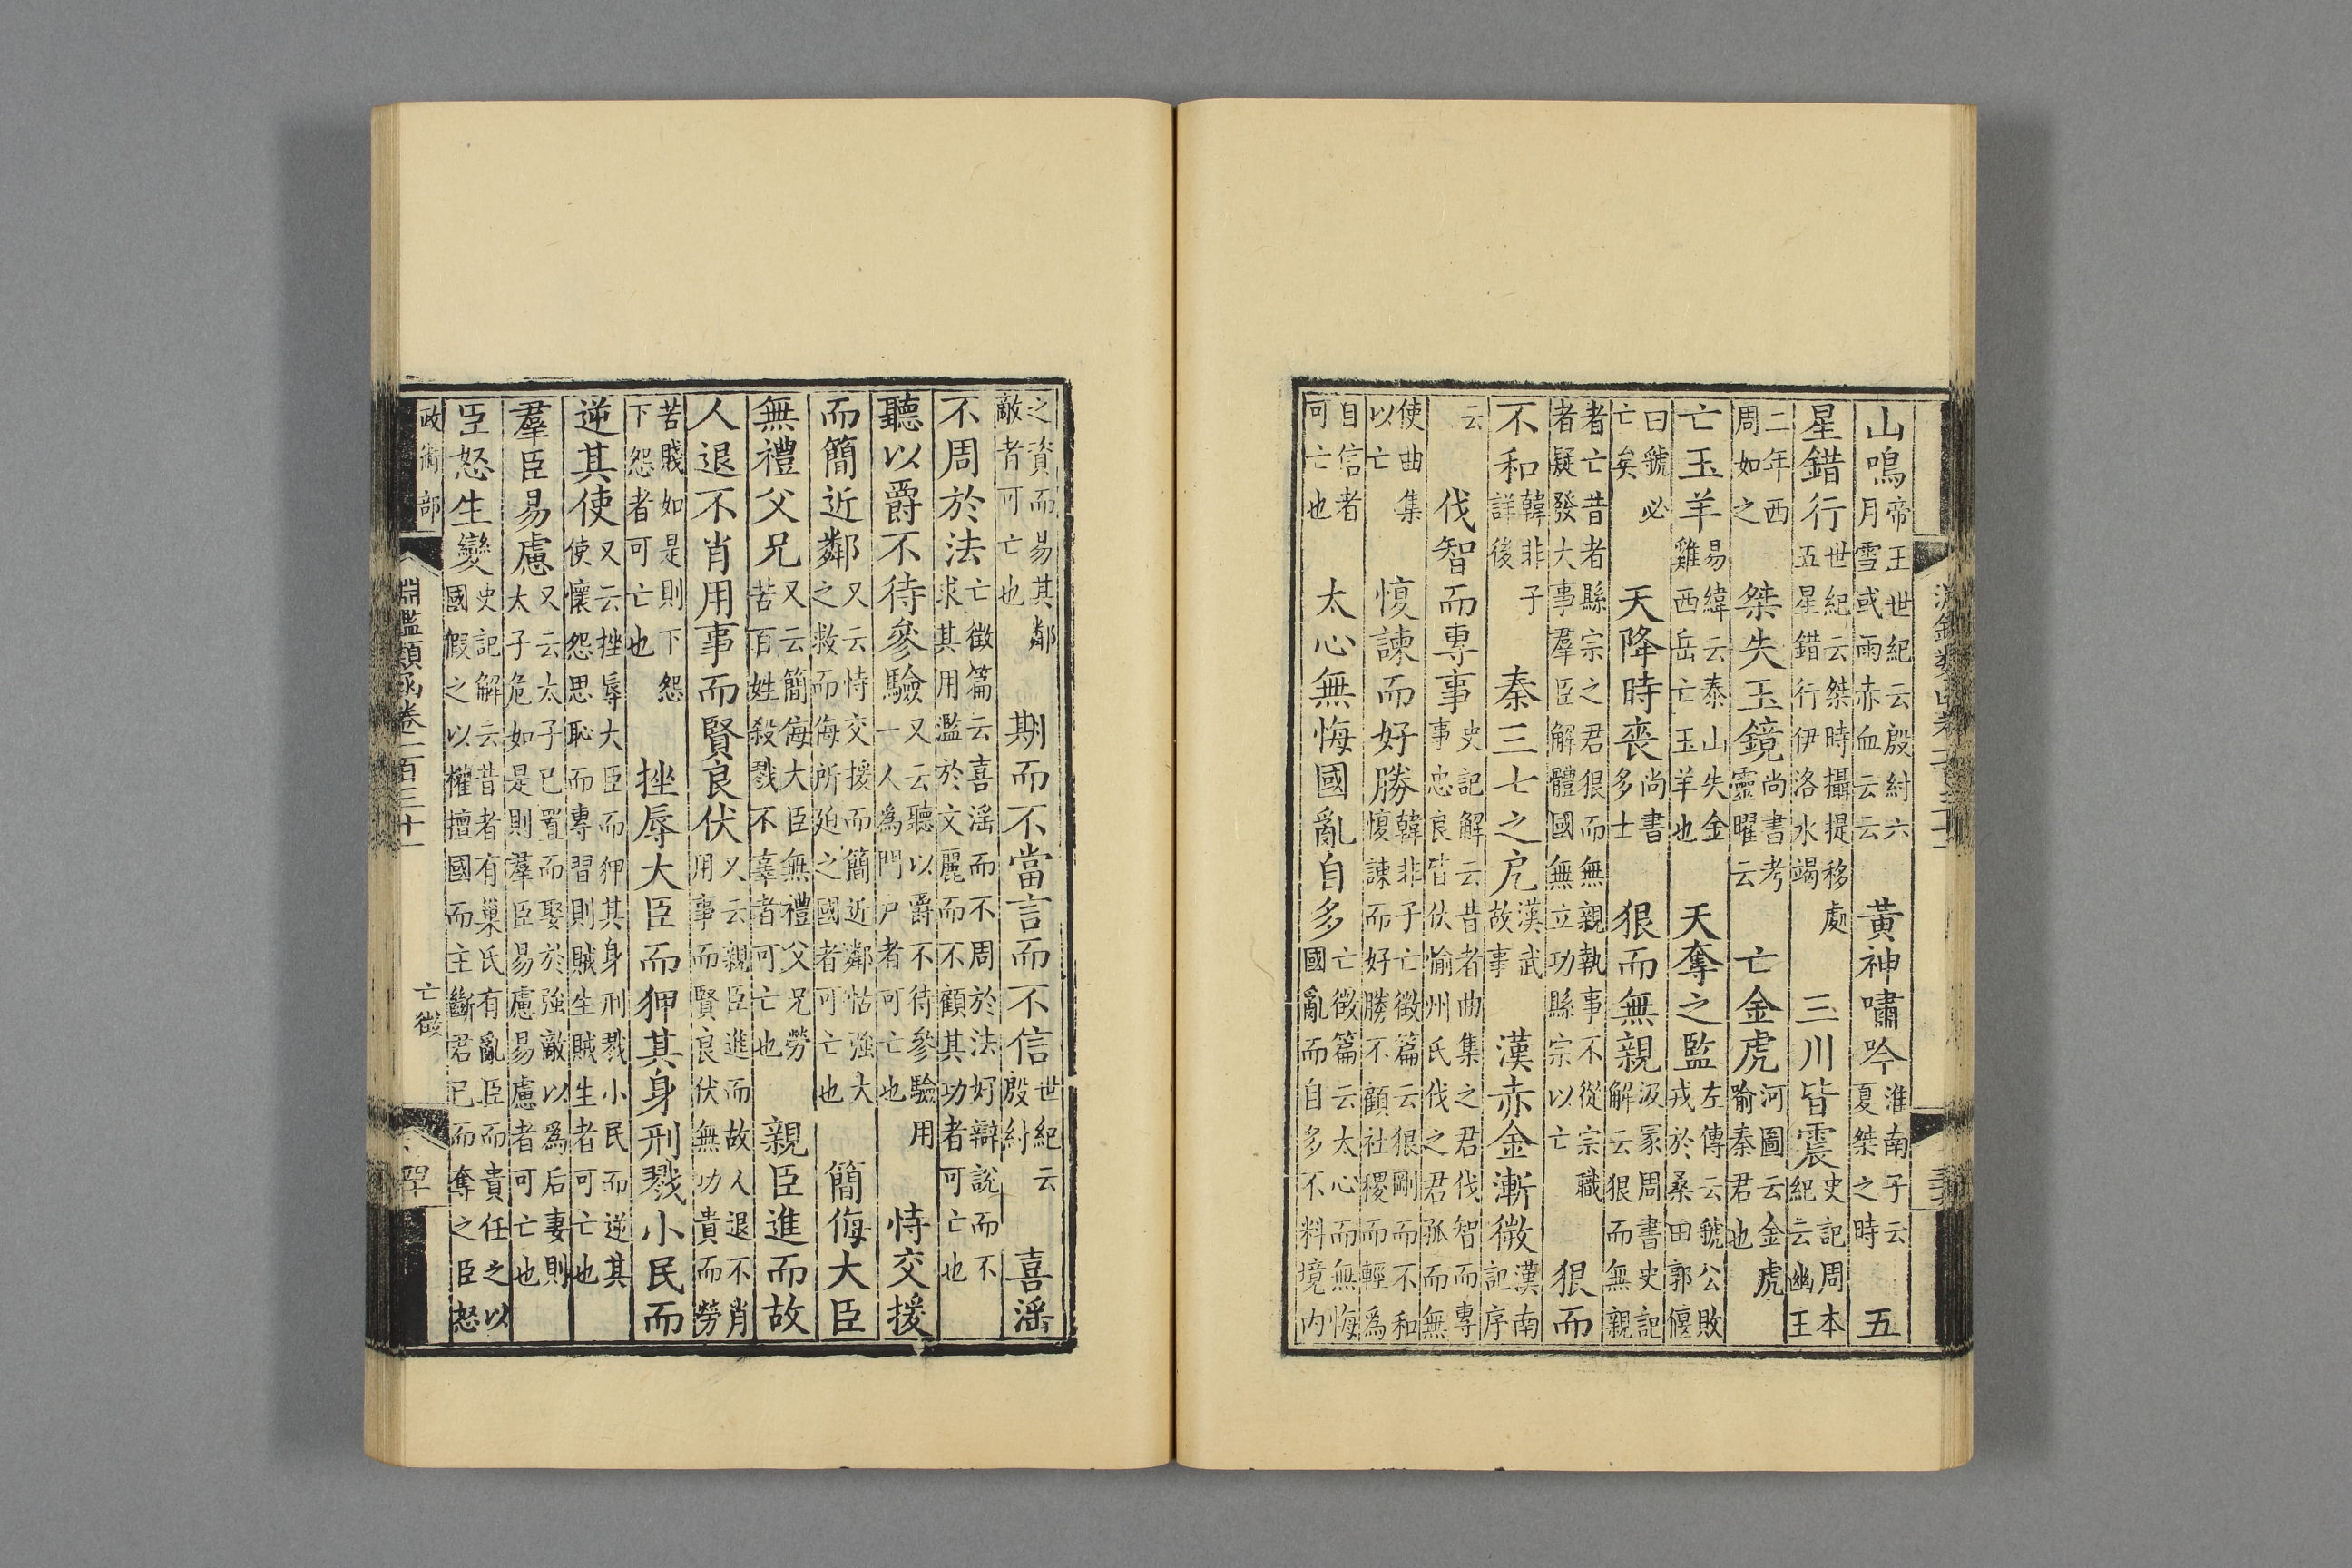 山鳴帝王世紀云殷紂六月雪或雨赤血云云 黃神嘯吟淮南子云夏桀之時 五
星錯行世紀云桀時攝提移處五星錯行伊洛水竭 三川皆震史記周本紀云幽王
二年西周如之 桀失玉鏡尚書考靈曜云 亡金虎河圖云金虎喻秦君也
亡玉羊易緯云泰山失金雞西岳亡玉羊也 天奪之監左傳云虢公敗戎於桑田郭偃
曰虢必亡矣 天降時喪尚書多士 狠而無親汲冢周書史記解云狠而無親
者亡昔者縣宗之君狠而無親執事不從宗職者疑發大事羣臣解體國無立功縣宗以亡 狠而
不和韓非子詳後 秦三七之戹漢武故事 漢赤金漸微漢南記序
云 伐智而專事史記解云昔者曲集之君伐智而專事忠良皆伏愉州氏伐之君孤而無
使曲集以亡 愎諫而好勝韓非子亡徵篇云狠剛而不和愎諫而好勝不顧社稷而輕爲
自信者可亡也 太心無悔國亂自多亡徵篇云太心而無悔國亂而自多不料境內
之資而易其鄰敵者可亡也 期而不當言而不信世紀云殷紂 喜淫
不周於法亡徵篇云喜淫而不周於法好辯說而不求其用濫於文麗而不顧其功者可亡也
聽以爵不待參驗又云聽以爵不待參驗用一人爲門戶者可亡也 恃交援
而簡近鄰又云恃交援而簡近鄰怙强大之救而侮所迫之國者可亡也 簡侮大臣
無禮父兄又云簡侮大臣無禮父兄勞苦百姓殺戮不辜者可亡也 親臣進而故
人退不肖用事而賢良伏又云親臣進而故人退不肖用事而賢良伏無功貴而勞
苦賤如是則下怨下怨者可亡也 挫辱大臣而狎其身刑戮小民而
逆其使又云挫辱大臣而狎其身刑戮小民而逆其使懷怨思恥而專習則賊生賊生者可亡也
羣臣易慮又云太子已置而娶於强敵以爲后妻則太子危如是則羣臣易慮易慮者可亡也
臣怒生變史記解云昔者有巢氏有亂臣而貴任之以國假之以權擅國而主斷君已而奪之臣怒
政術部 淵鑑類函卷一百三十一 亡徵